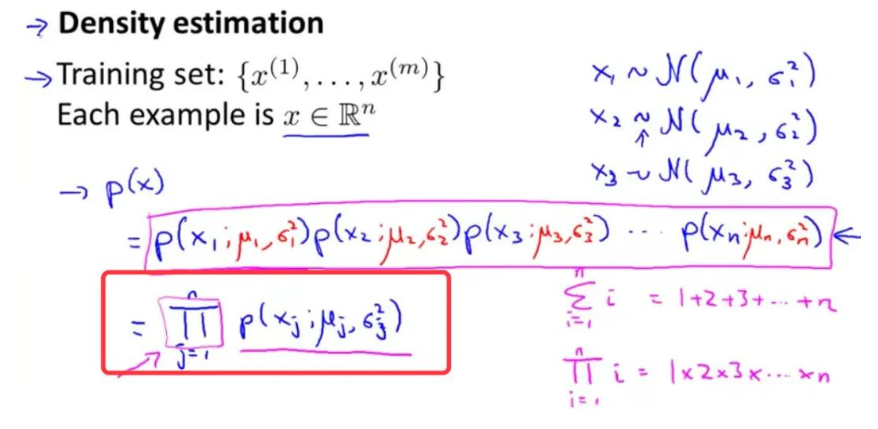 → Density estimation
→ Training set: {x^(1), . . . , x^(m)}
Each example is x ∈ ℝ^n
x₁ ~ N(μ₁, σ₁²)
x₂ ~ N(μ₂, σ₂²)
↑
x₃ ~ N(μ₃, σ₃²)
→ p(x)
= p(x₁; μ₁, σ₁²) p(x₂; μ₂, σ₂²) p(x₃; μ₃, σ₃²) ⋯ p(xₙ; μₙ, σₙ²) ←
= ∏_{j=1}^{n} p(x_j; μ_j, σ_j²)
∑_{i=1}^{n} i = 1+2+3+⋯+n
∏_{i=1}^{n} i = 1×2×3×⋯×n